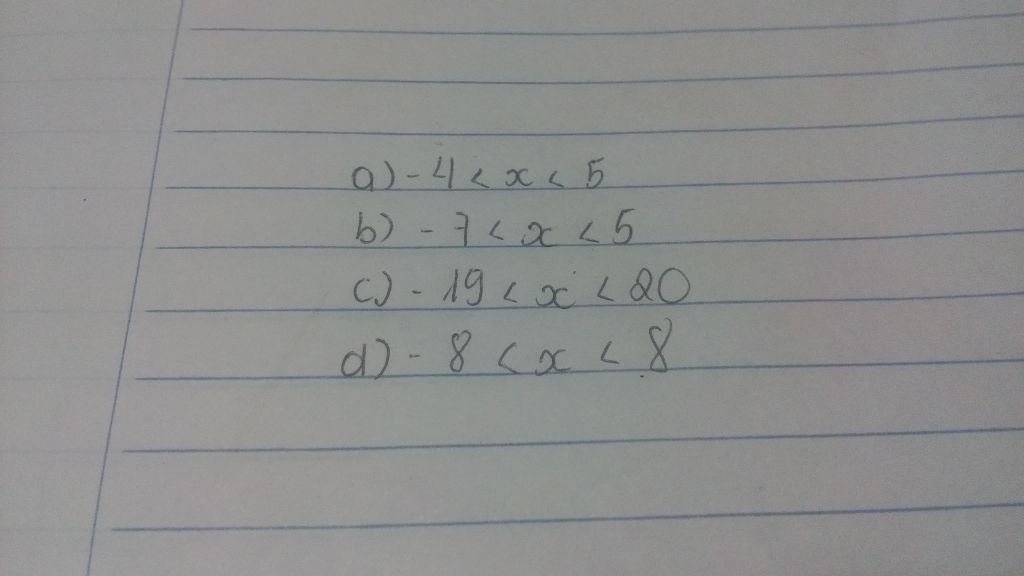 a) -4 < x < 5
b) -7 < x < 5
c) -19 < x < 20
d) -8 < x < 8